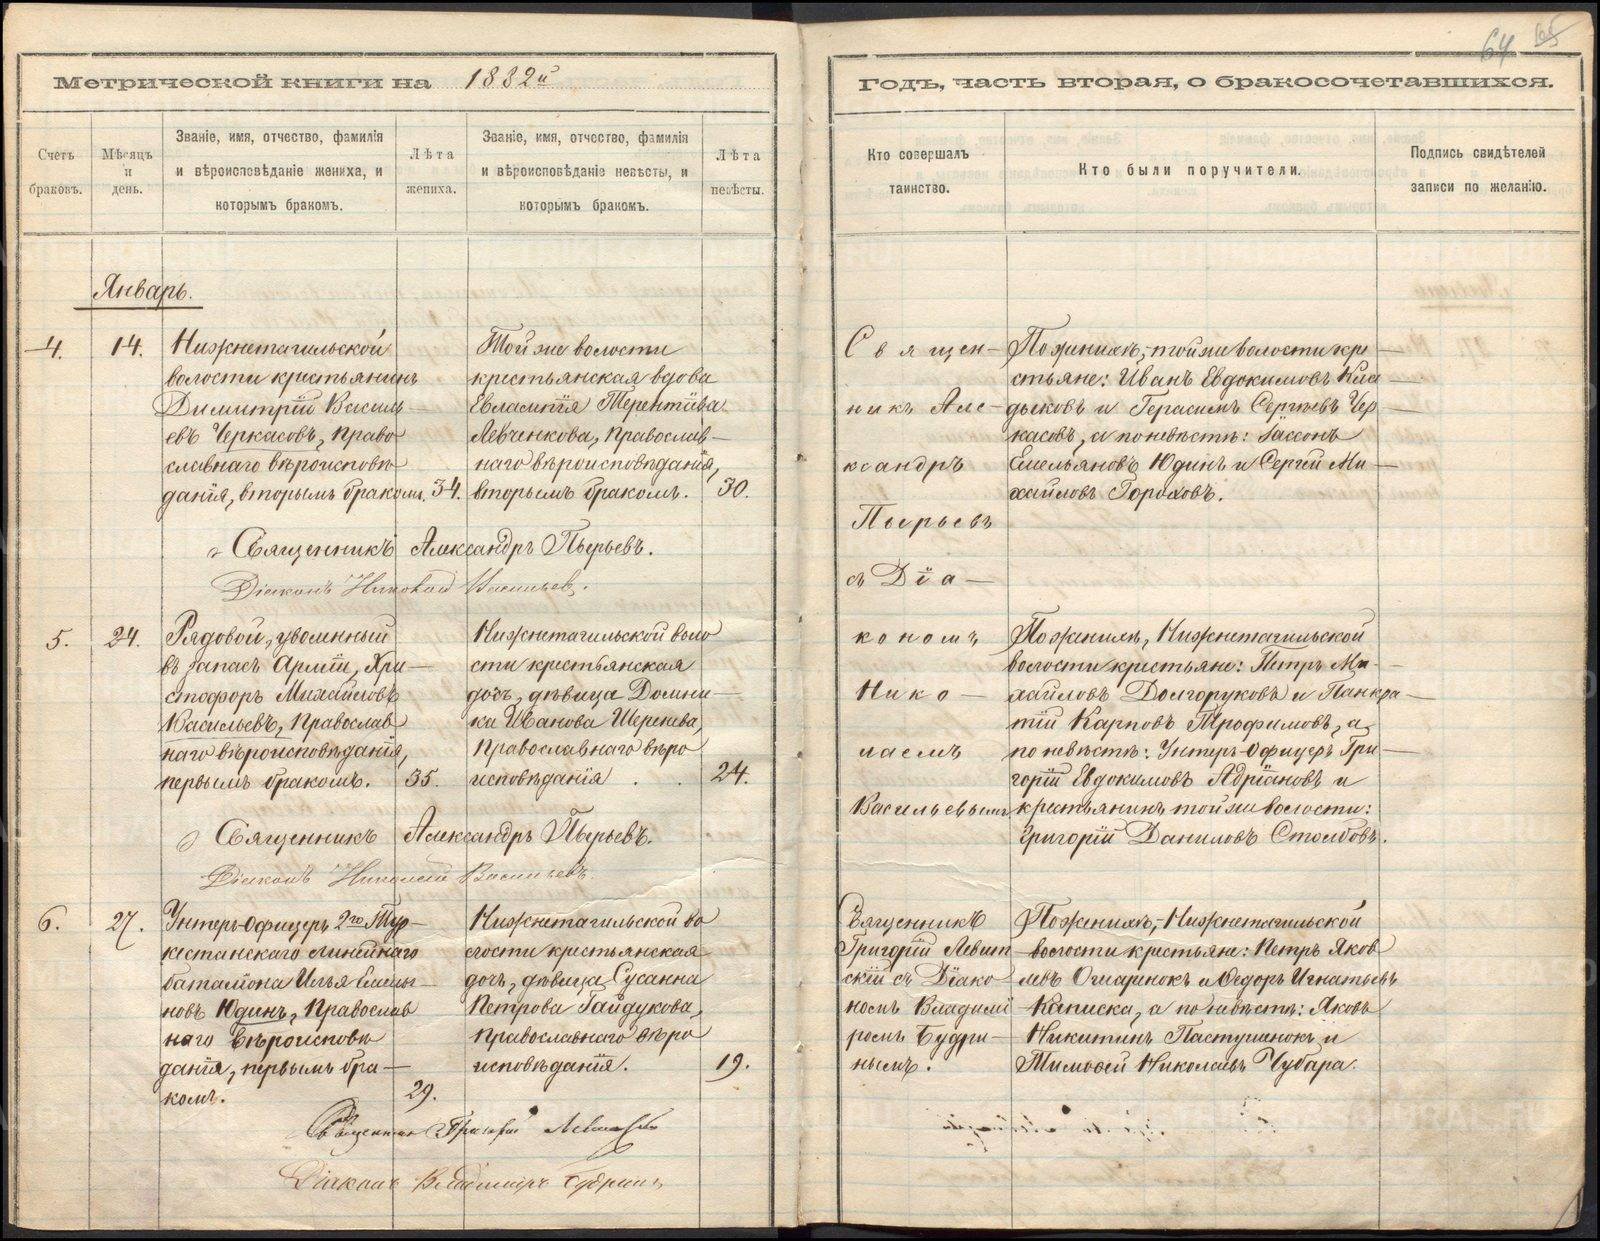 64 65
Метрической книги на 1882й
годъ, часть вторая, о бракосочетавшихся.
Счетъ браковъ.
Мѣсяцъ и день.
Званіе, имя, отчество, фамилія
и вѣроисповѣданіе жениха, и
которымъ бракомъ.
Лѣта
жениха.
Званіе, имя, отчество, фамилія
и вѣроисповѣданіе невѣсты, и
которымъ бракомъ.
Лѣта
невѣсты.
Кто совершалъ
таинство.
Кто были поручители.
Подпись свидѣтелей
записи по желанію.
Январь.
4.
14.
Нижнетагильской
волости крестьянинъ
Димитрій Василь-
евъ Черкасовъ, право
славнаго вѣроисповѣ
данія, вторымъ бракомъ.
34.
Той же волости
крестьянская вдова
Евлампія Терентіева
Левченкова, православ-
наго вѣроисповѣданія,
вторымъ бракомъ.
30.
Священ-
никъ Але-
ксандръ
Пырьевъ
съ Діа-
кономъ
Нико-
лаемъ
Васильевымъ
По женихѣ, той же волости кре-
стьяне: Иванъ Евдокимовъ Кла-
дыковъ и Герасимъ Сергѣевъ Чер-
касовъ, а по невѣстѣ: Іассонъ
Емельяновъ Юдинъ и Сергѣй Ми-
хайловъ Гороховъ.
Священникъ Александръ Пырьевъ.
Діаконъ Николай Васильевъ.
5.
24.
Рядовой, уволенный
въ запасъ Арміи, Хри-
стофоръ Михайловъ
Васильевъ, православ
наго вѣроисповѣданія,
первымъ бракомъ.
35.
Нижнетагильской воло
сти крестьянская
дочь, дѣвица Домни-
ка Иванова Шеренева,
православнаго вѣро
исповѣданія
24.
По женихѣ, Нижнетагильской
волости крестьяне: Петръ Ми-
хайловъ Долгоруковъ и Панкра-
тій Карповъ Трофимовъ, а
по невѣстѣ: Унтеръ-офицеръ Гри-
горій Евдокимовъ Адріановъ и
крестьянинъ той же волости:
Григорій Даниловъ Столбовъ.
Священникъ Александръ Пырьевъ.
Діаконъ Николай Васильевъ.
6.
27.
Унтеръ-Офицеръ 2го Тур-
кестанскаго линейнаго
баталіона Илья Емелья-
новъ Юдинъ, православ
наго вѣроисповѣ
данія, первымъ бра-
комъ.
29.
Нижнетагильской во
лости крестьянская
дочь, дѣвица Сусанна
Петрова Гайдукова,
православнаго вѣро
исповѣданія.
19.
Священникъ
Григорій Левит-
скій съ Діако-
номъ Владимі
ромъ Будри-
нымъ.
По женихѣ, Нижнетагильской
волости крестьяне: Петръ Яков
левъ Огчаринокъ и Ѳедоръ Игнатьевъ
Каписка, а по невѣстѣ: Яковъ
Никитинъ Пастушенокъ и
Тимоѳей Николаевъ Чубара.
Священникъ Григорій Левитскій
Діаконъ Владиміръ Будринъ